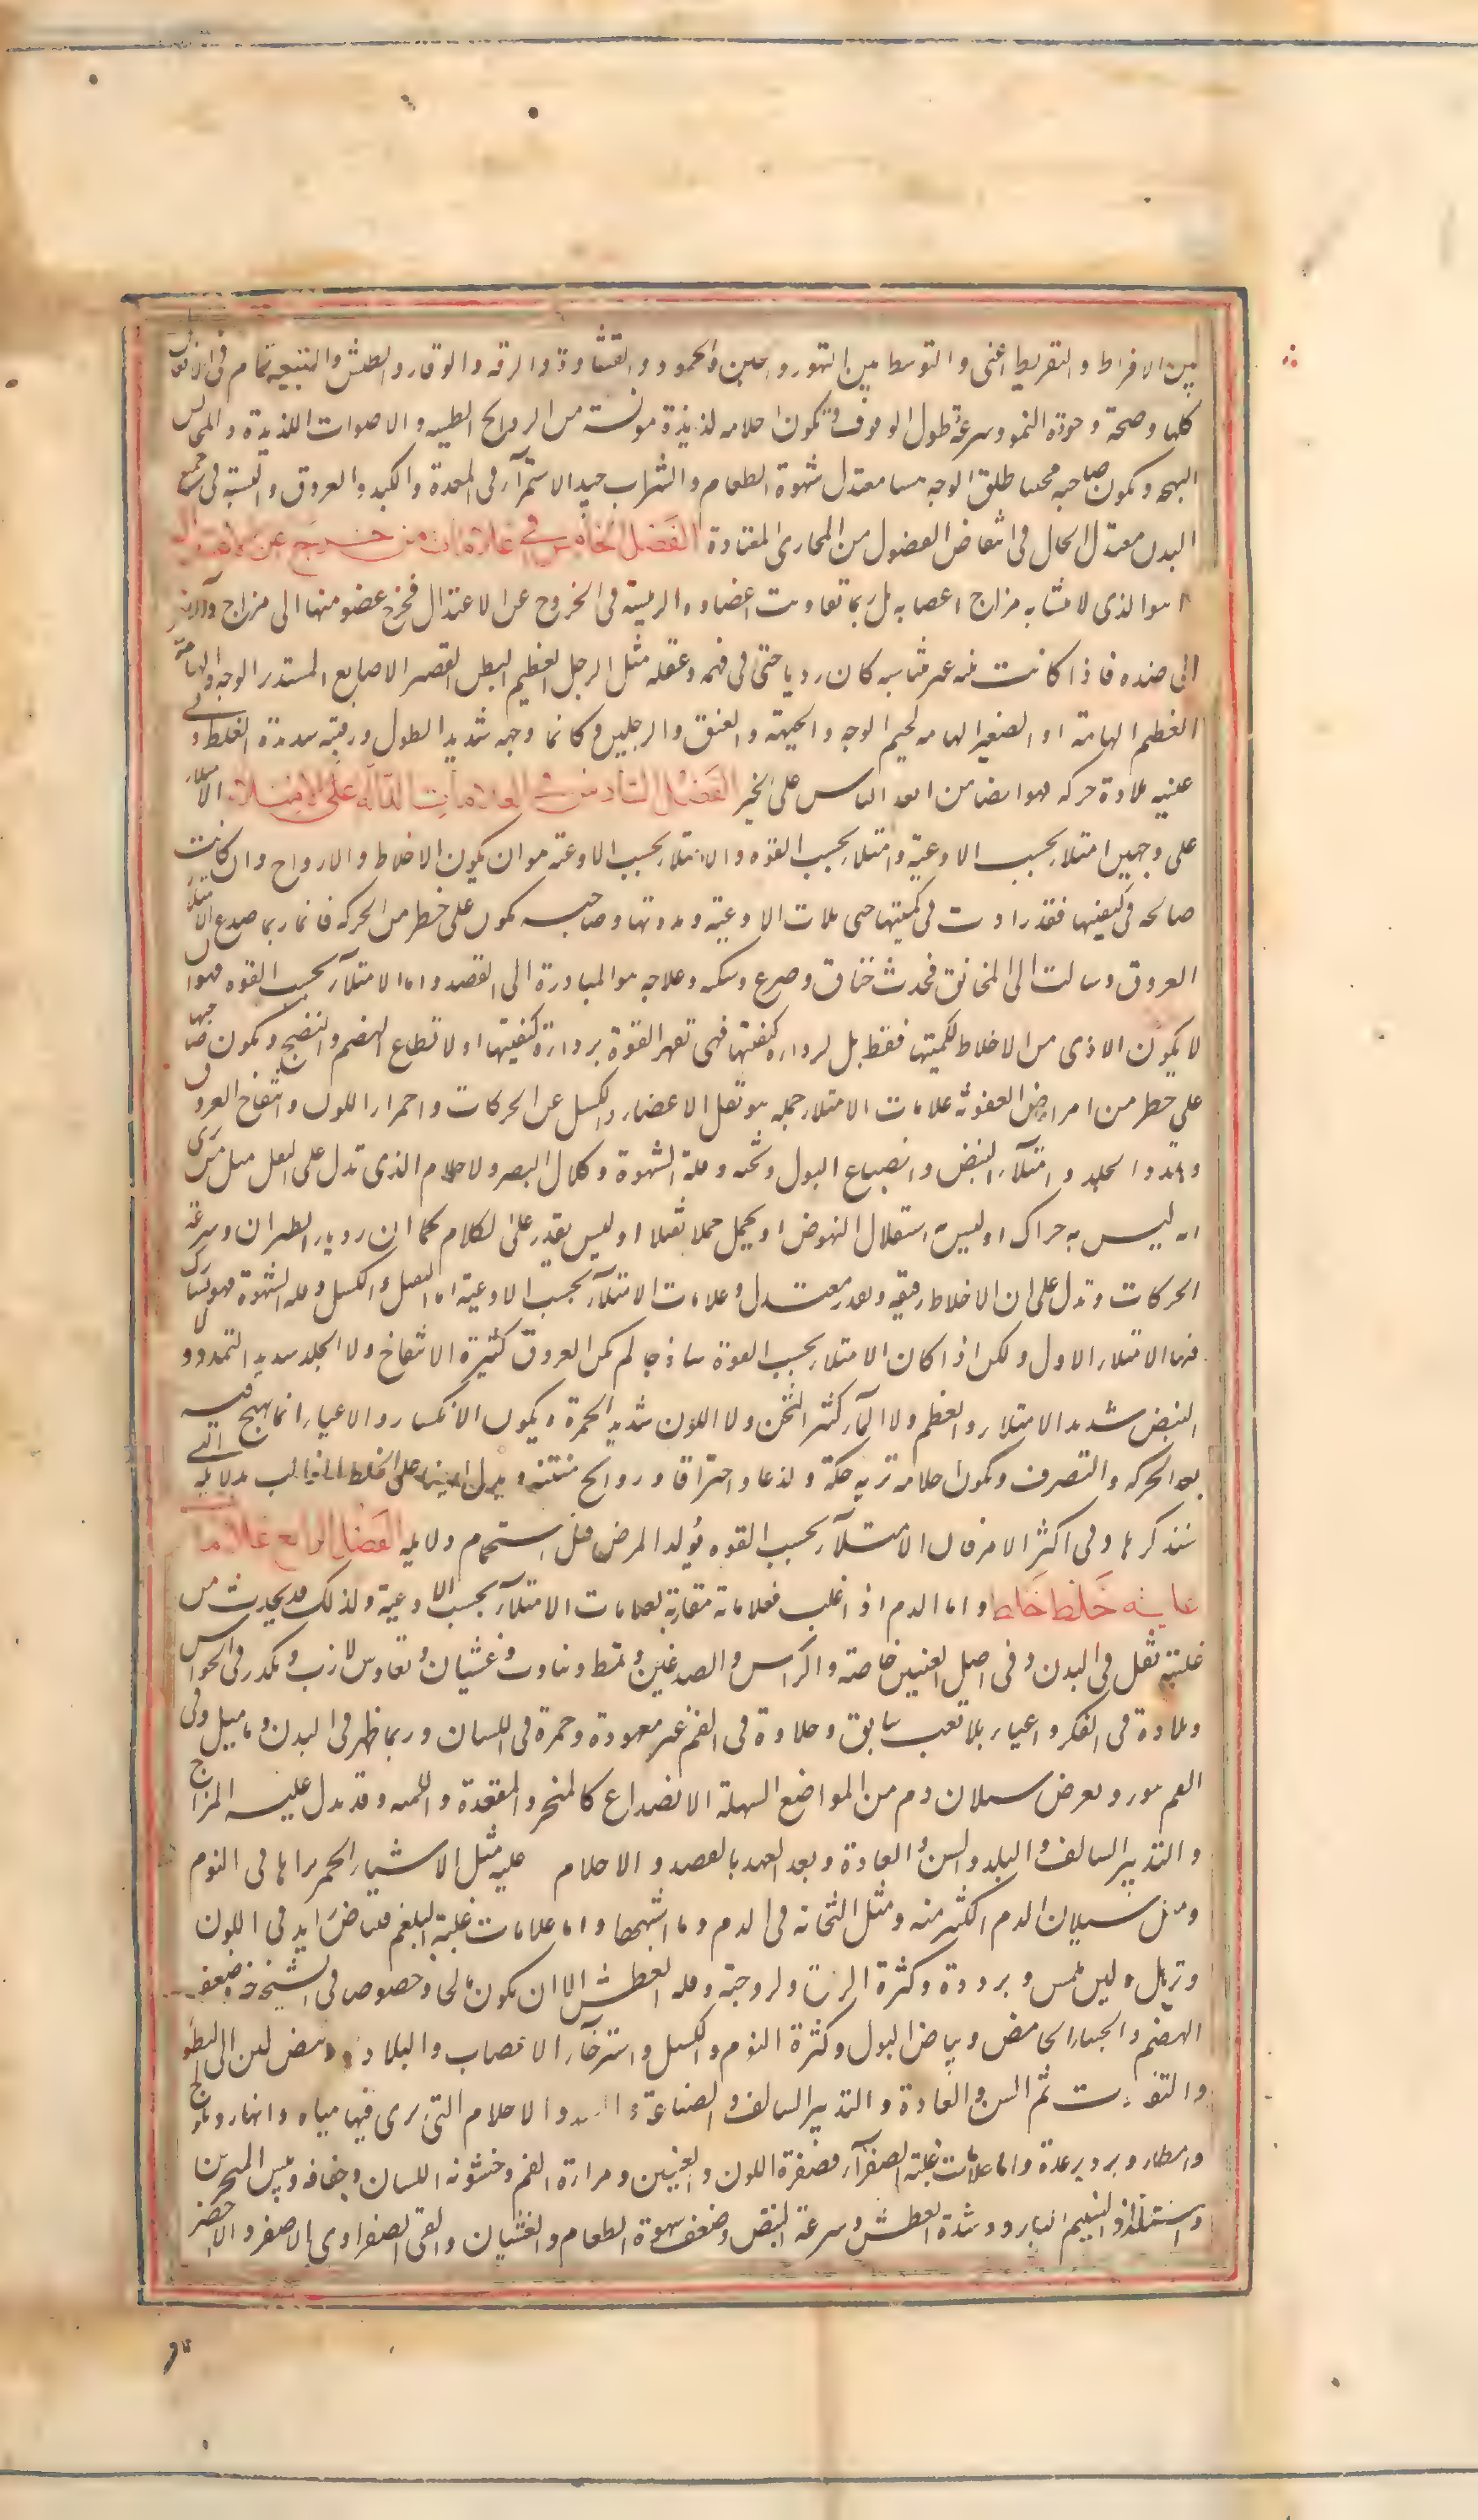 بين الافراط والتفريط اعنى والتوسط بين التهور والجبن والجمود والقشاوة والرقه والوقار والطش والتنبيه تمام فى الافعال
كلها وصحة وجودة النمو وسرعة وطول الوقوف وتكون احلامه لذيذة مونسة من الروايح الطيبه والاصوات اللذيذة والمجالس
البهجه ويكون صاحبه محببا طلق الوجه هشا معتدل شهوة الطعام والشراب جيد الاستمرآء فى المعدة والكبد والعروق والنسبة فى جميع
البدن معتدل الحال فى انتفاض الفضول من المجارى المعتادة الفصل الخامس فى علامات من خرج عن الاعتدال
هو الذى لا يتشابه مزاج اعضابه بل ربما تعاونت اعضاوه الرييسة فى الخروج عن الاعتدال فخرج عضو منها الى مزاج والاخر
الى ضده فاذا كانت بنيته غير متناسبه كان رديا حتى فى فهمه وعقله مثل الرجل العظيم البطن القصير الاصابع المستدير الوجه والهامة
العظيم الهامة او الصغير الهامه لحيم الوجه والجبهة والعنق والرجلين وكانما وجهه شديد الطول ورقبته شديدة الغلظ وفى
عينيه بلادة حركه فهو ايضا من ابعد الناس على الخير الفصل السادس فى العلامات الدالة على الامتلاء الامتلاء
على وجهين امتلاء بحسب الاوعية وامتلاء بحسب القوه والامتلاء بحسب الاوعية هو ان يكون الاخلاط والارواح وان كانت
صالحه فى كيفيتها فقد زادت فى كميتها حتى ملات الاوعية ومددتها وصاحبه يكون على خطر من الحركه فانه ربما صدع الامتلاء
العروق وسالت الى المخانق فحدث خناق وصرع وسكته وعلاجه هو المبادرة الى الفصد واما الامتلآء بحسب القوه فهو ان
لا يكون الاذى من الاخلاط لكميتها فقط بل لرداءة كيفيتها فهى تقهر القوة برداءة كيفيتها ولا تطاع الهضم والنضج ويكون صاحبها
على خطر من امراض العفونة علامات الامتلاء جمله هو ثقل الاعضاء والكسل عن الحركات واحمرار اللون وانتفاخ العروق
وتمدد الجلد وامتلآء النبض وانصباغ البول وثخنه وقلة الشهوة وكلال البصر والاحلام الذى تدل على الثقل مثل من يرى
انه ليس به حراك او ليس به استقلال النهوض او يحمل حملا ثقيلا او ليس يقدر على الكلام كما ان رويا الطيران وسرعة
الحركات تدل على ان الاخلاط رقيقه وبقدر معتدل وعلامات الامتلآء بحسب الاوعية اما الثقل والكسل وقله الشهوة فهو يشارك
فيها الامتلاء الاول ولكن اذا كان الامتلاء بحسب القوة ساذجا لم يكن العروق كثيرة الانتفاخ ولا الجلد شديد التمدد ولا
النبض شديد الامتلاء والعظم ولا المآء كثير الثخن ولا اللون شديد الحمرة ويكون الانكسار والاعياء انما يهيج فيه
بعد الحركه والتصرف وتكون احلامه تريه حكة ولذعا واحتراقا وروايح منتنه ويدل ايضا على الخلط الغالب بدلايله التى
سنذكرها وفى اكثر الامر فان الامتلآء بحسب القوه يولد المرض قبل استحكام دلايله الفصل الرابع علامات
غلبة خلط خلط واما الدم اذا غلب فعلاماته مقاربة لعلامات الامتلآء بحسب الاوعية ولذلك قد يحدث من
غلبته ثقل فى البدن وفى اصل العينين خاصة والراس والصدغين وتمط وتثاوب وغشيان ونعاس لازب وتكدر فى الحواس
وبلادة فى الفكر واعياء بلا تعب سابق وحلاوة فى الفم غير معهودة وحمرة فى اللسان وربما ظهر فى البدن دماميل وفى
الفم بثور ويعرض سيلان دم من المواضع السهلة الانصداع كالمنخر والمقعدة واللثه وقد يدل عليه المزاج
والتدبير السالف والبلد والسن والعادة وبعد العهد بالفصد والاحلام عليه مثل الاشياء الحمر يراها فى النوم
ومثل سيلان الدم الكثير منه ومثل الثخانة فى الدم وما اشبهها واما علامات غلبة البلغم فبياض زايد فى اللون
وترهل ولين ملمس وبرودة وكثرة الريق ولزوجته وقله العطش الا ان يكون مالحا وخصوصا فى الشيخوخة وضعف
الهضم والجشاء الحامض وبياض البول وكثرة النوم والكسل واسترخآء الاعصاب والبلادة ونبض لين الى البطو
والتفاوت ثم السن والعادة والتدبير السالف والصناعة والبلد والاحلام التى يرى فيها مياه وانهار وثلوج
وامطار وبرد برعدة واما علامات غلبة الصفرآء فصفرة اللون والعينين ومرارة الفم وخشونة اللسان وجفافه ويبس المنخرين
واستلذاذ النسيم البارد وشدة العطش وسرعة النبض وضعف شهوة الطعام والغشيان والقى الصفراوى الاصفر والاخضر